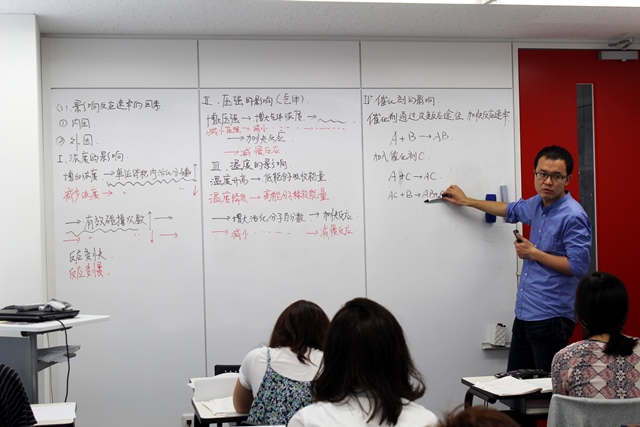 (2). 影响反应速率的因素
① 内因
② 外因
I. 浓度的影响
增加浓度 → 单位体积内活化分子数
减少浓度 →
→ 有效碰撞次数
→
反应变快
反应变慢
II. 压强的影响（气体）
增大压强 → 增大气体浓度 →
减小压强 → 减小
→ 加快反应
→ 减慢反应
III. 温度的影响
温度升高 → 低能分子吸收能量
温度降低 → 高能分子释放能量
→ 增大活化分子百分数 → 加快反应
→ 减小 → 减慢反应
催化剂的影响
催化剂通过改变反应途径 加快反应速率
A + B → AB
加入催化剂C.
A + C → AC
AC + B → AB + C